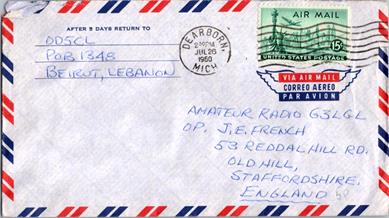 AFTER 5 DAYS RETURN TO
OD5CL
POB 1348
BEIRUT, LEBANON
DEARBORN,
JUL 26
1960
MICH
AIR MAIL
15¢
UNITED STATES POSTAGE
VIA AIR MAIL
CORREO AEREO
PAR AVION
AMATEUR RADIO G3LGL
OP. J.E. FRENCH
53 REDDAL HILL RD.
OLD HILL,
STAFFORDSHIRE,
ENGLAND